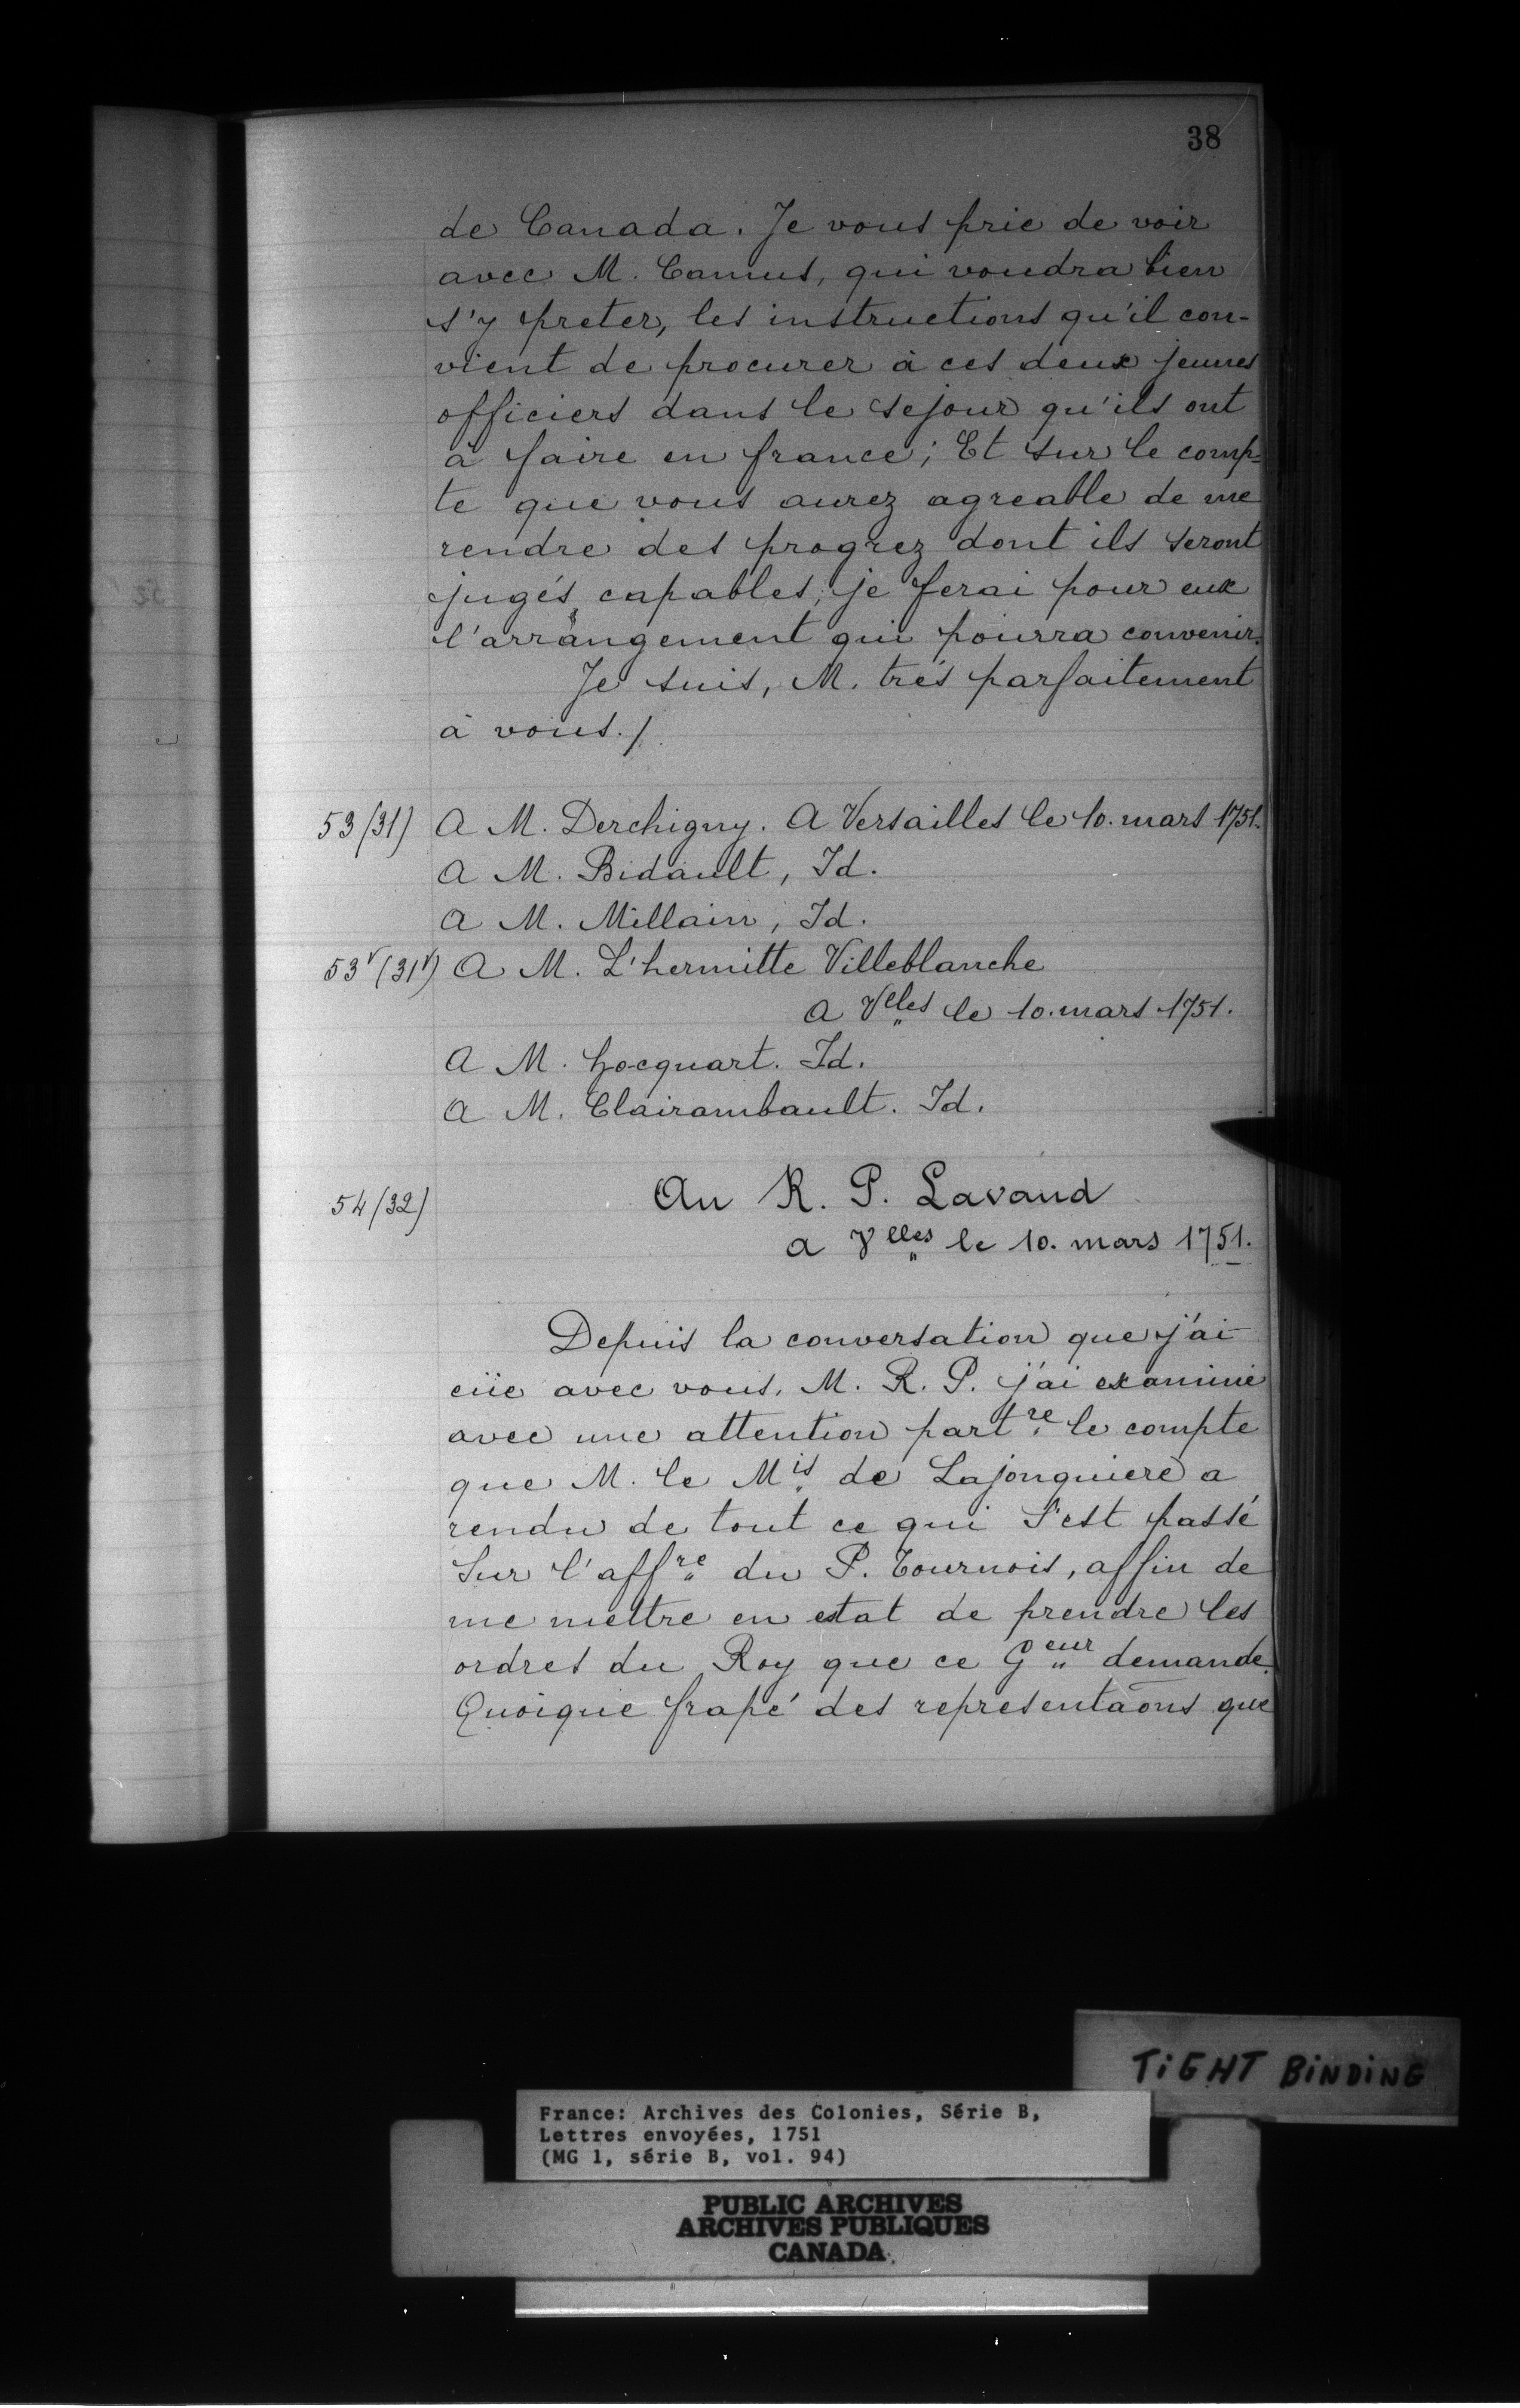 38
de Canada. Je vous prie de voir
avec M. Camus, qui voudra bien
s'y preter, les instructions qu'il con-
vient de procurer à ces deux jeunes
officiers dans le sejour qu'ils ont
à faire en france; Et sur le comp=
te que vous aurez agreable de me
rendre des progrez dont ils seront
jugés capables, je ferai pour eux
l'arrangement qui pourra convenir.
Je suis, M. trés parfaitement
à vous./.
53 (31) A M. Derchigny. A Versailles le 10. mars 1751.
A M. Bidault, Id.
A M. Millain, Id.
53v (31v) A M. L'hermitte Villeblanche
A Vlles le 10. mars 1751.
A M. hocquart. Id.
A M. Clairambault. Id.
54 (32) Au R. P. Lavaud
a Vlles le 10. mars 1751.
Depuis la conversation que j'ai
eüe avec vous, M. R. P. j'ai examiné
avec une attention partre le compte
que M. le Mis de Lajonquiere a
rendu de tout ce qui s'est passé
sur l'affre du P. Tournois, affin de
me mettre en estat de prendre les
ordres du Roy que ce Geur demande.
Quoique frapé des representaõns que
TIGHT BINDING
France: Archives des Colonies, Série B,
Lettres envoyées, 1751
(MG 1, série B, vol. 94)
PUBLIC ARCHIVES
ARCHIVES PUBLIQUES
CANADA